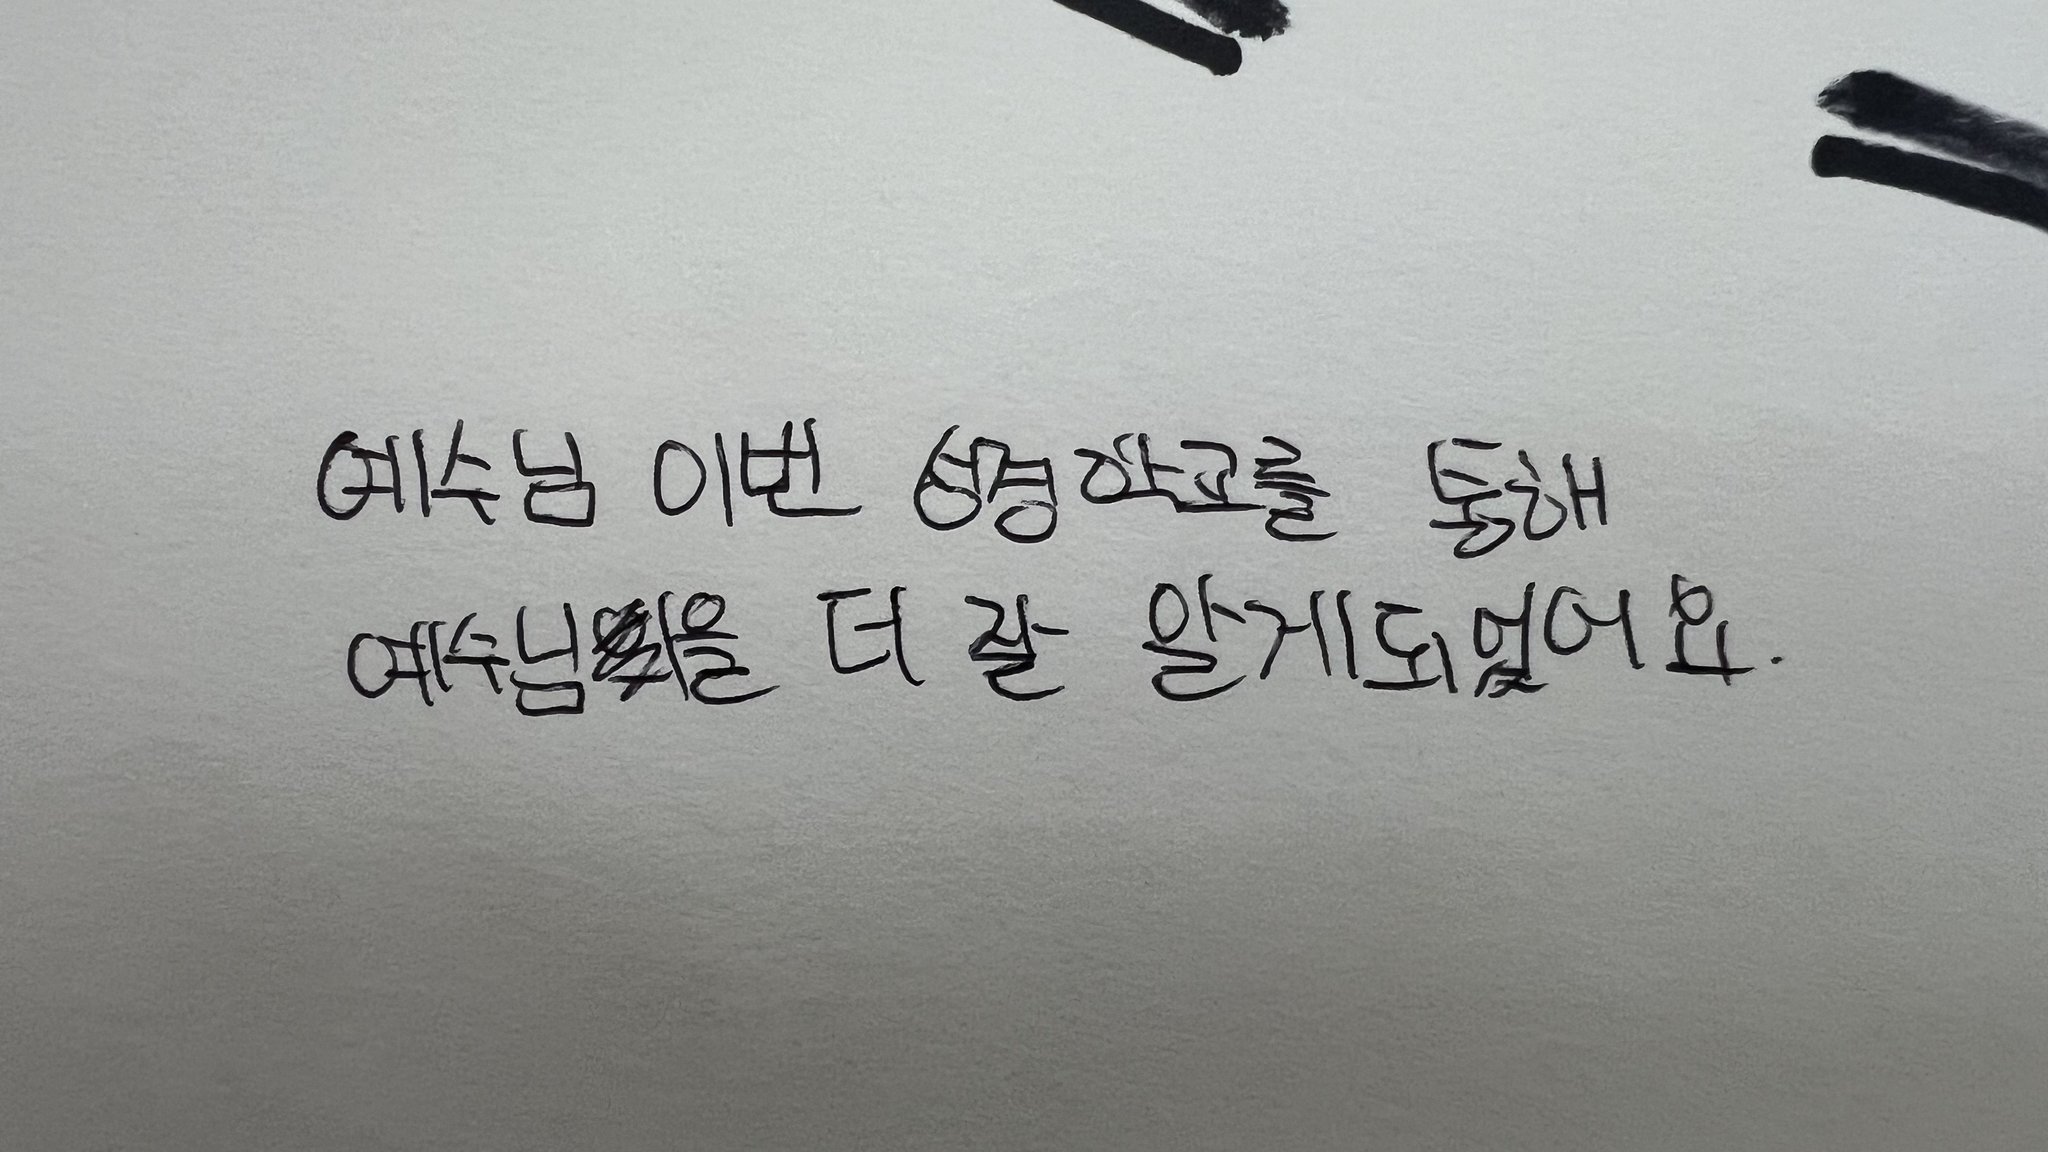 예수님 이번 성경학교를 통해
예수님을 더 잘 알게되었어요.